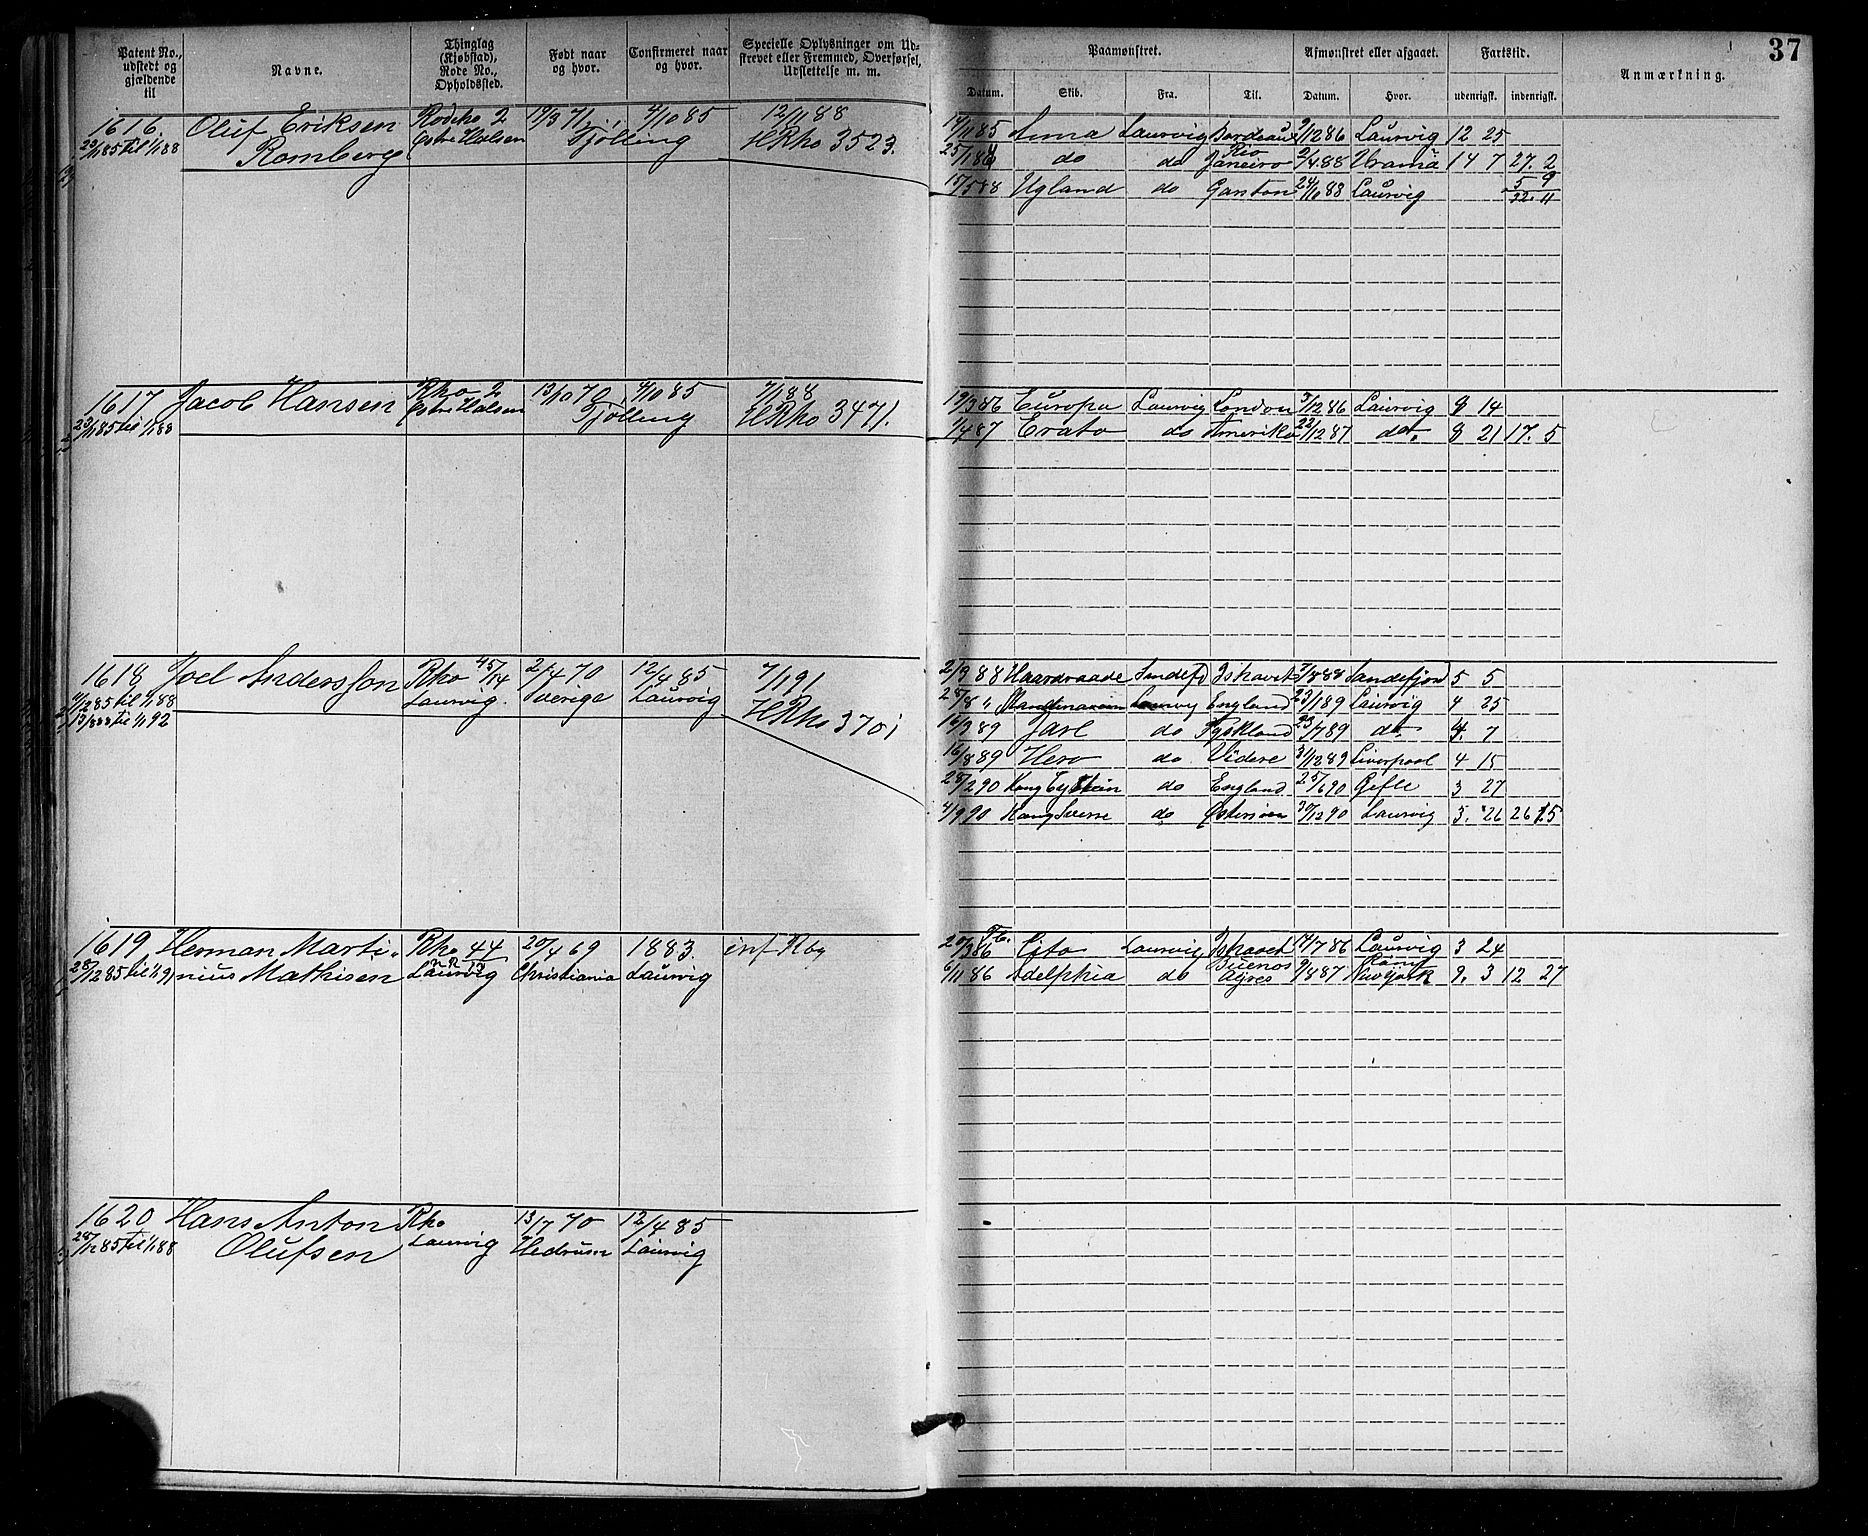 37
Patent No., udstedt og gjældende til
Navne.
Thinglag (Kjøbstad), Rode No., Opholdssted.
Født naar og hvor.
Confirmeret naar og hvor.
Specielle Oplysninger om Udskrevet eller Fremmed, Overførsel, Udslettelse m. m.
Paamønstret.
Afmønstret eller afgaaet.
Fartstid.
Anmærkning.
Datum. Skib. Fra. Til. Datum. Hvor. udenrigsk. indenrigsk.
1616 Oluf Eriksen 2 19/3 71 4/10 85 12/11 88
til 1/1 88 Romberg Østre Halsen Tjølling HRho 3523.
14/11 85 Laurvig Bordeaux 9/12 86 Laurvig 12 25
do do Rio Janeiro 2/4 88 14 7 27. 2
15/5 88 Ugland do Garston 24/10 88 Laurvig 5 9
32. 11
1617 Jacob Hansen Rho 2 13/10 70 4/10 85 7/1 88
til 1/1 88 Østre Halsen Tjølling HRho 3471.
19/3 86 Europa Laurvig London 3/12 86 Laurvig 8 14
1/4 87 Erato do Amerika 22/12 87 do. 8 21 17. 5
1618 Joel Andersson Rho 45/14 2/4 70 12/4 85 7/1 91
4/12 85 til 1/1 88 Laurvig. Sverige Laurvig HRho 3701
til 1/1 92
2/3 88 Haardraade Sandefj Ishavet 7/8 88 Sandefjord 5 5
25/8 " Laurvig England 23/1 89 Laurvig 4 25
16/3 89 Jarl do Tyskland 23/7 89 do. 4. 7
16/8 89 Hero do Videre 31/12 89 Liverpool 4 15
28/2 90 Kong Eystein do England 25/6 90 Gefle 3 27
4/9 90 Kong Sverre do Østersøen 30/12 90 Laurvig 5. 26 26 15
1619 Herman Marti- Rho 44 20/4 69 1883. inf Rby
28/12 85 til 1/1 91 nius Mathisen Laurvig Christiania Laurvig
20/3 86 Cito Laurvig Ishavet 14/7 86 Laurvig 3 24
6/11 86 Adelphia do Buenos Ayres 9/8 87 Rømt Newyork 9. 3 12 27
1620 Hans Anton Rho 13/7 70 12/4 85
28/12 85 til 1/1 88 Olufsen Laurvig Hedrum Laurvig